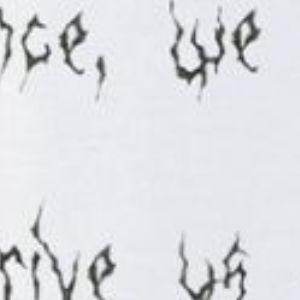 nce, we
rive us